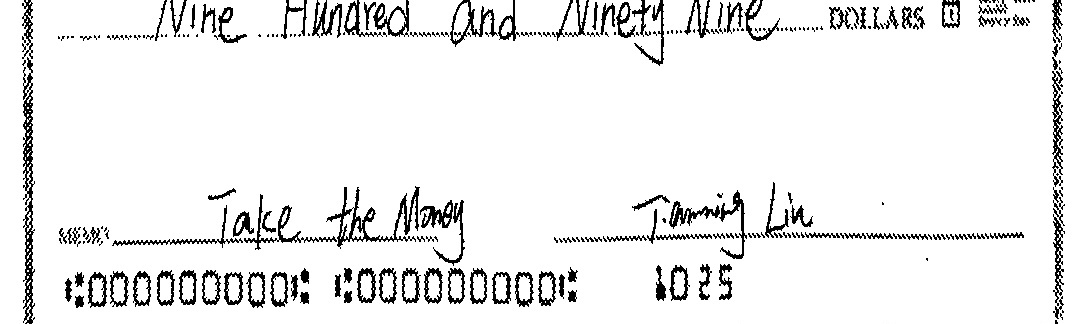 Nine Hundred and Ninety Nine DOLLARS
Take the Money
MEMO
⑆000000000⑆ ⑆000000000⑆ 1025